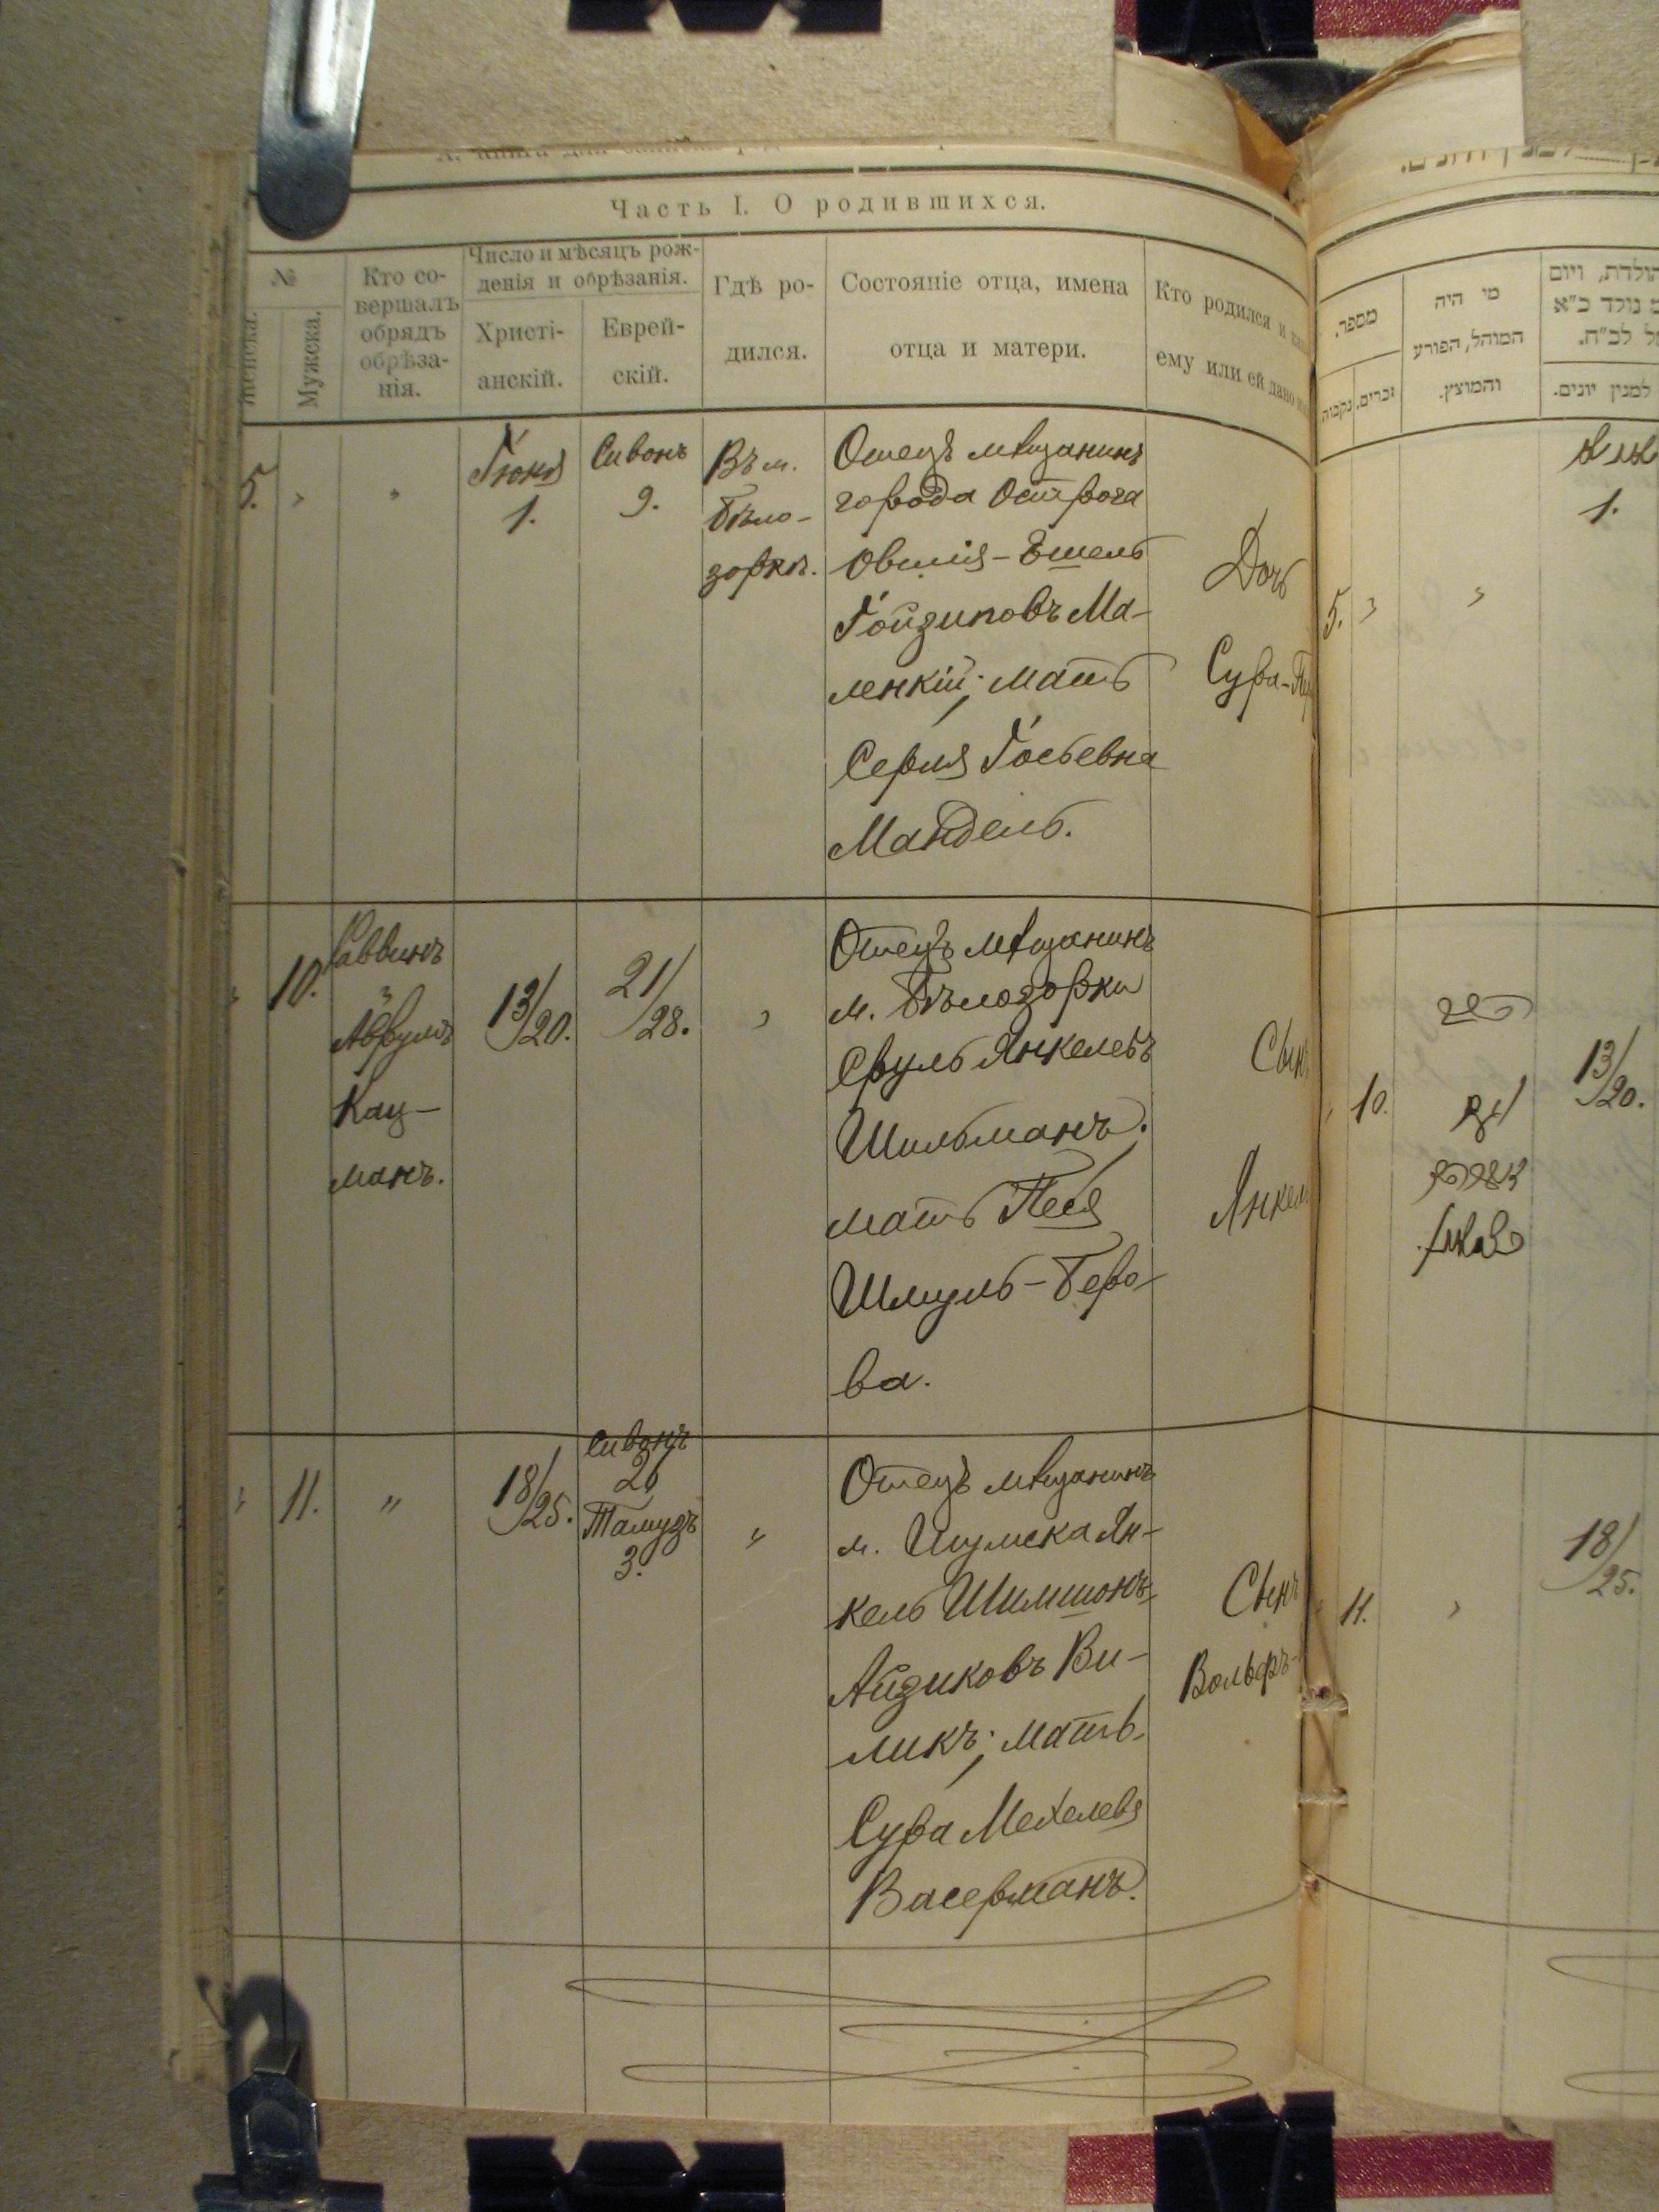 Часть I. О родившихся.
№
Женска.
Мужска.
Кто со-
вершалъ
обрядъ
обрѣза-
нія.
Число и мѣсяцъ рож-
денія и обрѣзанія.
Христі-
анскій.
Еврей-
скій.
Гдѣ ро-
дился.
Состояніе отца, имена
отца и матери.
Кто родился и
ему или ей дано
5.
Іюня
1.
Сивонъ
9.
Въ м.
Бѣло-
зоркѣ.
Отецъ мѣщанинъ
города Острога
Овшія-Ешель
Ма-
ленкій; мать
Іосьевна
Мандель.
Дочь
Сура-
10.
Раввинъ
Аврумъ
Кац-
манъ.
13/20.
21/28.
Отецъ мѣщанинъ
м. Бѣлозорки
Сруль Янкелевъ
Шильманъ.
мать Песя
Шмуль-Беро-
ва.
Сынъ
Янкель
11.
"
18/25.
Сивонъ
26
Тамузъ
3.
"
Отецъ мѣщанинъ
м. Шумска Ян-
кель Шимшонъ-
Айзиковъ Ви-
ликъ; мать
Сура Мехелева
Васерманъ.
Сынъ
Вольфъ-
מספר.
זכרים. נקבות
מי היה
המוהל, הפורע
והמוצץ.
הולדת, ויום
נולד כ"א
לכ"ח.
למנין יונים.
1.
5.
10.
הרב
ר'
אברהם
קאצמאן.
13/20.
11.
18/25.